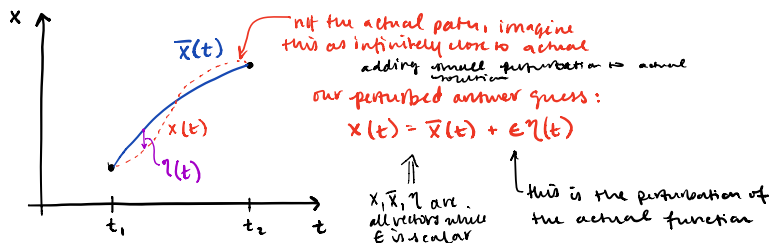 x
x̄(t)
not the actual path, imagine
this as infinitely close to actual
adding small perturbation to actual
solution
our perturbed answer guess:
x(t) = x̄(t) + ϵη(t)
x(t)
η(t)
x, x̄, η are
all vectors while
ϵ is scalar
this is the perturbation of
the actual function
t₁
t₂
t